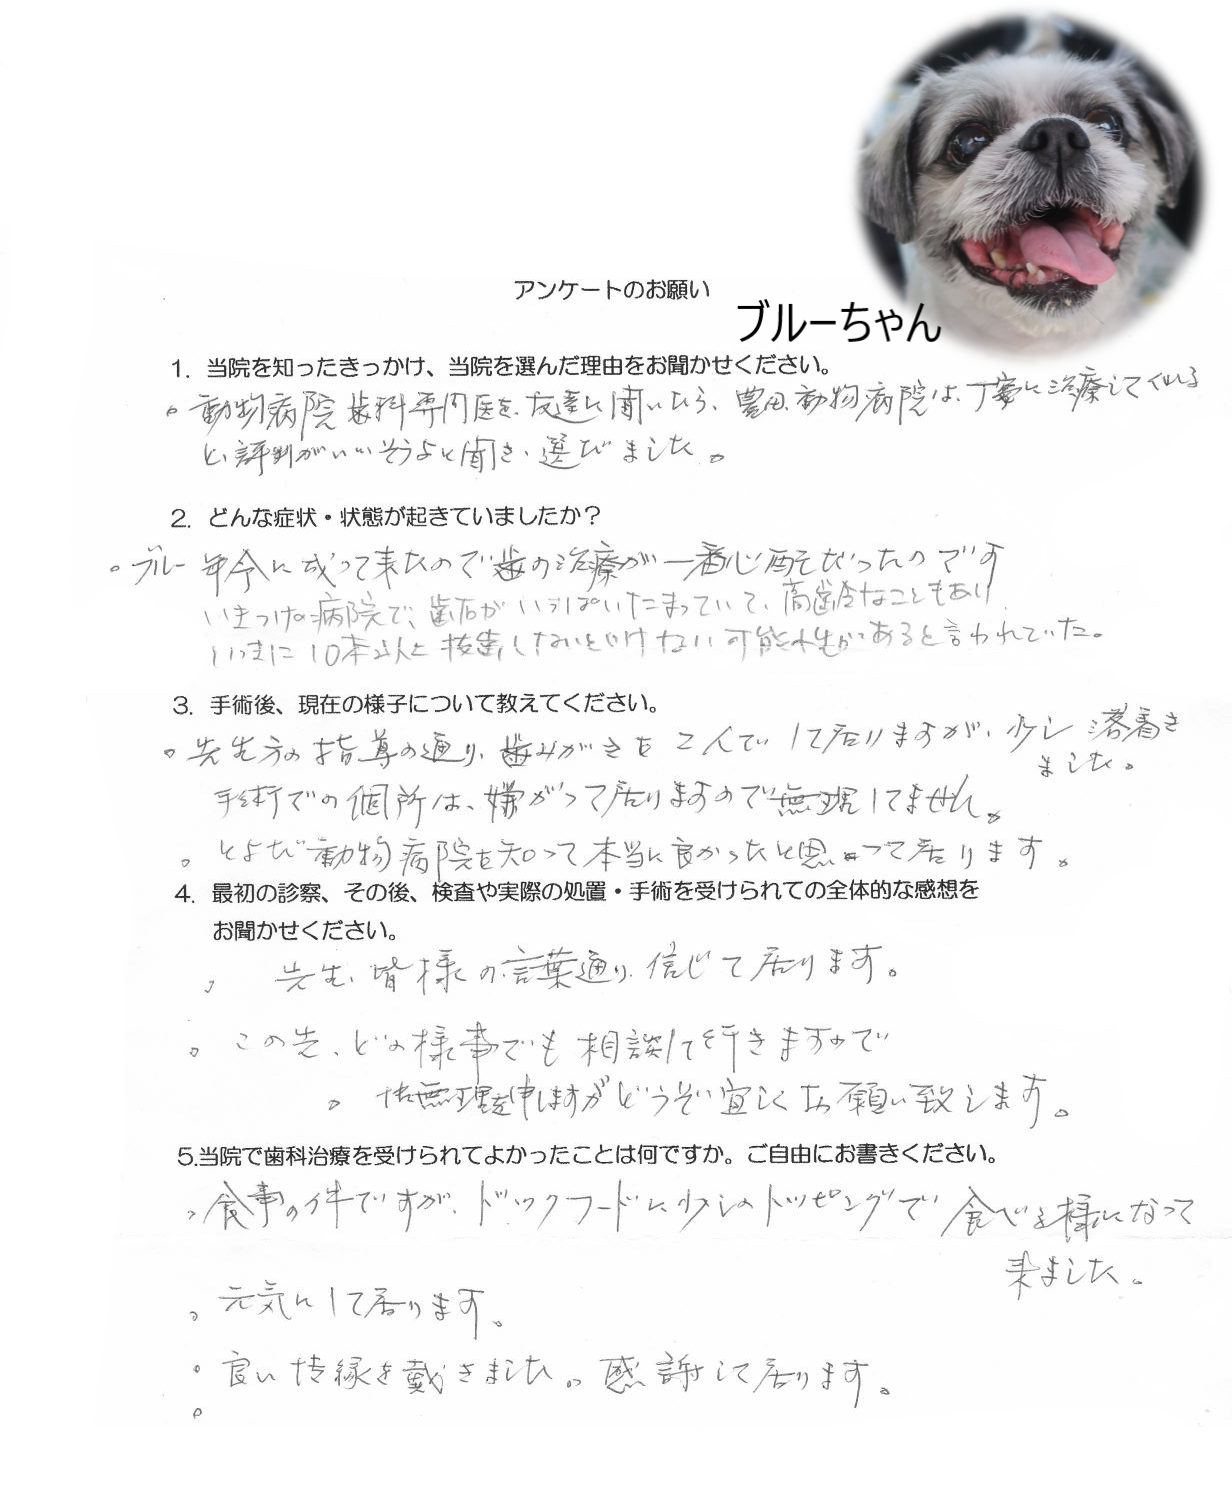 アンケートのお願い
ブルーちゃん
1. 当院を知ったきっかけ、当院を選んだ理由をお聞かせください。
。動物病院歯科専門医を、友達に聞いたら、豊田動物病院は、丁寧に治療してくれる
と、評判がいいそうよと聞き、選びました。
2. どんな症状・状態が起きていましたか？
。ブルー 年令に成って来たので歯の治療が一番心配だったのです
いきつけの病院で、歯石がいっぱいたまっていて、高齢なこともあり
いまに10本以上抜歯しないといけない可能性があると言われていた。
3. 手術後、現在の様子について教えてください。
。先生方の指導の通り、歯みがきを して居りますが、少し落着き
ました。
手術での個所は、嫌がって居りますので無理してません。
。とよだ動物病院を知って本当に良かったと思って居ります。
4. 最初の診察、その後、検査や実際の処置・手術を受けられての全体的な感想を
お聞かせください。
。先生、皆様の言葉通り、信じて居ります。
。この先、どの様事でも相談して行きますので
。御無理を申しますがどうぞ宜しくお願い致します。
5.当院で歯科治療を受けられてよかったことは何ですか。ご自由にお書きください。
。食事の件ですが、ドックフードに少しのトッピングで食べる様になって
来ました。
。元気にして居ります。
。良い 縁を戴きました。感謝して居ります。
。